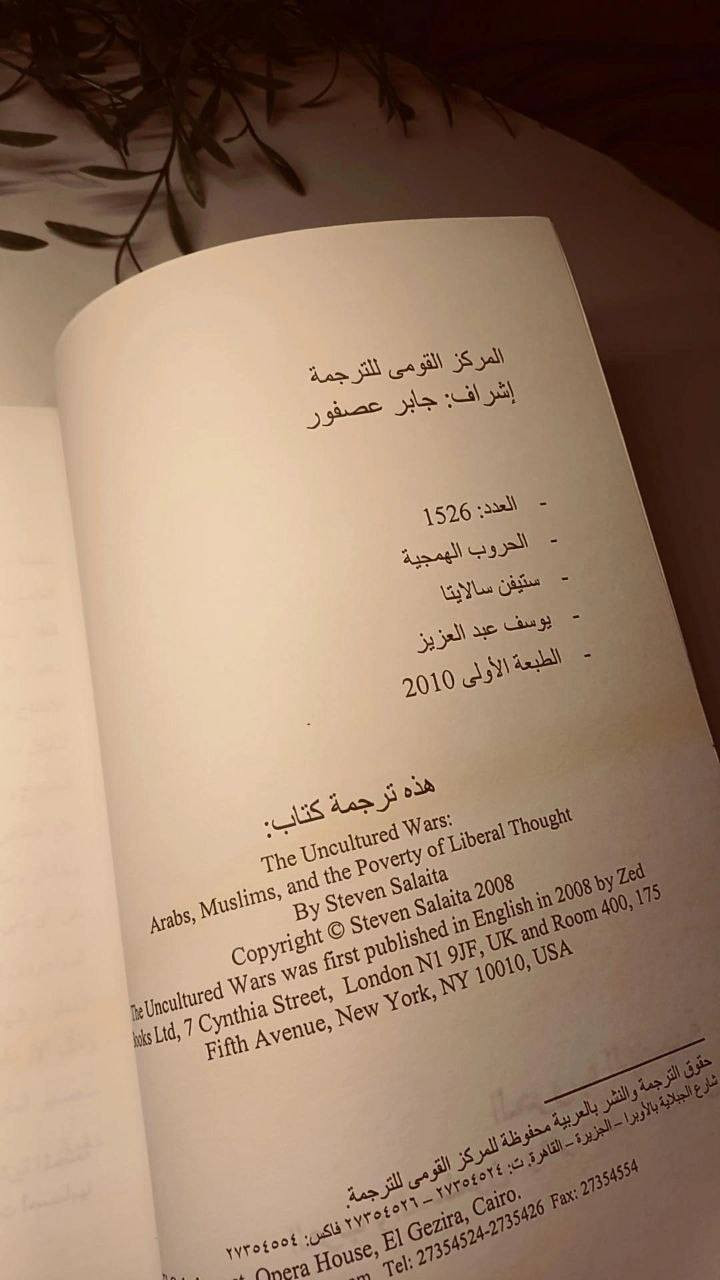 المركز القومى للترجمة
إشراف: جابر عصفور
- العدد: 1526
- الحروب الهمجية
- ستيفن سالايتا
- يوسف عبد العزيز
- الطبعة الأولى 2010
هذه ترجمة كتاب:
The Uncultured Wars:
Arabs, Muslims, and the Poverty of Liberal Thought
By Steven Salaita
Copyright © Steven Salaita 2008
The Uncultured Wars was first published in English in 2008 by Zed
Books Ltd, 7 Cynthia Street, London N1 9JF, UK and Room 400, 175
Fifth Avenue, New York, NY 10010, USA
حقوق الترجمة والنشر بالعربية محفوظة للمركز القومى للترجمة.
شارع الجبلاية بالأوبرا – الجزيرة – القاهرة. ت: ٢٧٣٥٤٥٢٤ – ٢٧٣٥٤٥٢٦ فاكس: ٢٧٣٥٤٥٥٤
Opera House, El Gezira, Cairo.
Tel: 27354524-2735426 Fax: 27354554